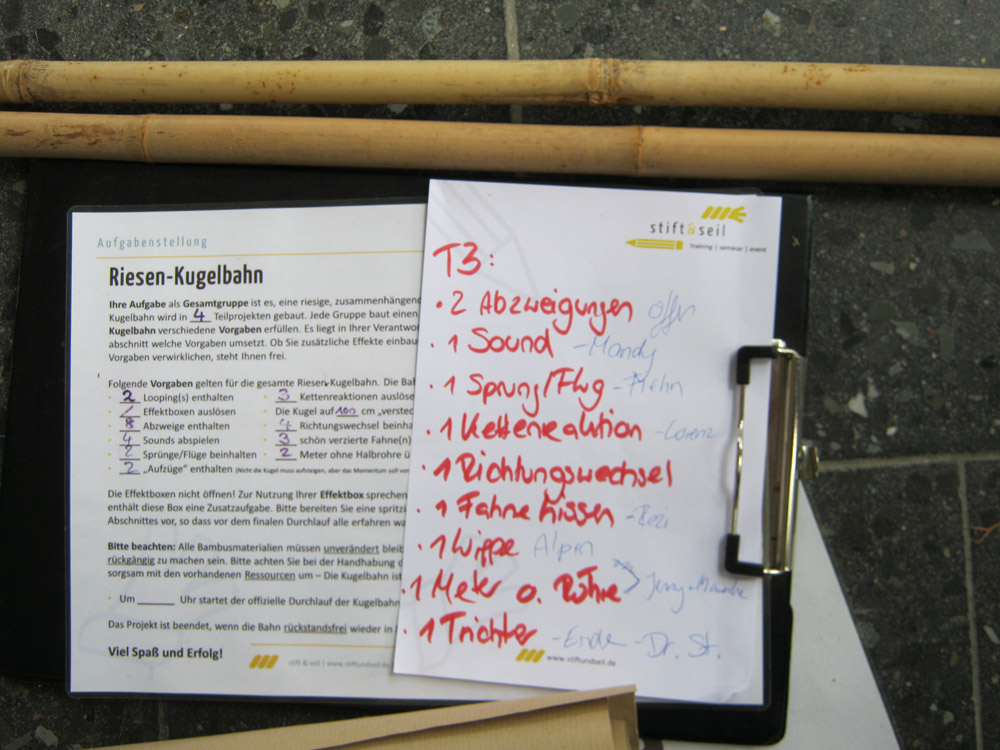 Aufgabenstellung
Riesen-Kugelbahn
Ihre Aufgabe als Gesamtgruppe ist es, eine riesige, zusammenhängend
Kugelbahn wird in 4 Teilprojekten gebaut. Jede Gruppe baut einen
Kugelbahn verschiedene Vorgaben erfüllen. Es liegt in Ihrer Verantwor
abschnitt welche Vorgaben umsetzt. Ob Sie zusätzliche Effekte einbau
Vorgaben verwirklichen, steht Ihnen frei.
Folgende Vorgaben gelten für die gesamte Riesen-Kugelbahn. Die Ba
2 Looping(s) enthalten
Effektboxen auslösen
8 Abzweige enthalten
4 Sounds abspielen
2 Sprünge/Flüge beinhalten
2 „Aufzüge“ enthalten (Nicht die Kugel muss aufsteigen, aber das Momentum soll vor
3 Kettenreaktionen auslöse
Die Kugel auf 100 cm „verstec
4 Richtungswechsel beinha
3 schön verzierte Fahne(n)
2 Meter ohne Halbrohre ü
Die Effektboxen nicht öffnen! Zur Nutzung Ihrer Effektbox sprechen
enthält diese Box eine Zusatzaufgabe. Bitte bereiten Sie eine spritzi
Abschnittes vor, so dass vor dem finalen Durchlauf alle erfahren wa
Bitte beachten: Alle Bambusmaterialien müssen unverändert bleib
rückgängig zu machen sein. Bitte achten Sie bei der Handhabung d
sorgsam mit den vorhandenen Ressourcen um – Die Kugelbahn ist
Um ______ Uhr startet der offizielle Durchlauf der Kugelbahn
Das Projekt ist beendet, wenn die Bahn rückstandsfrei wieder in
Viel Spaß und Erfolg!
stift & seil | www.stiftundseil.de
stift&seil
training | seminar | event
T3:
• 2 Abzweigungen offen
• 1 Sound - Mandy
• 1 Sprung/Flug
• 1 Kettenreaktion - Lorenz
• 1 Richtungswechsel
• 1 Fahne hissen
• 1 Wippe Alpen
• 1 Meter o. Röhre
• 1 Trichter - Ende - Dr. St.
www.stiftundseil.de